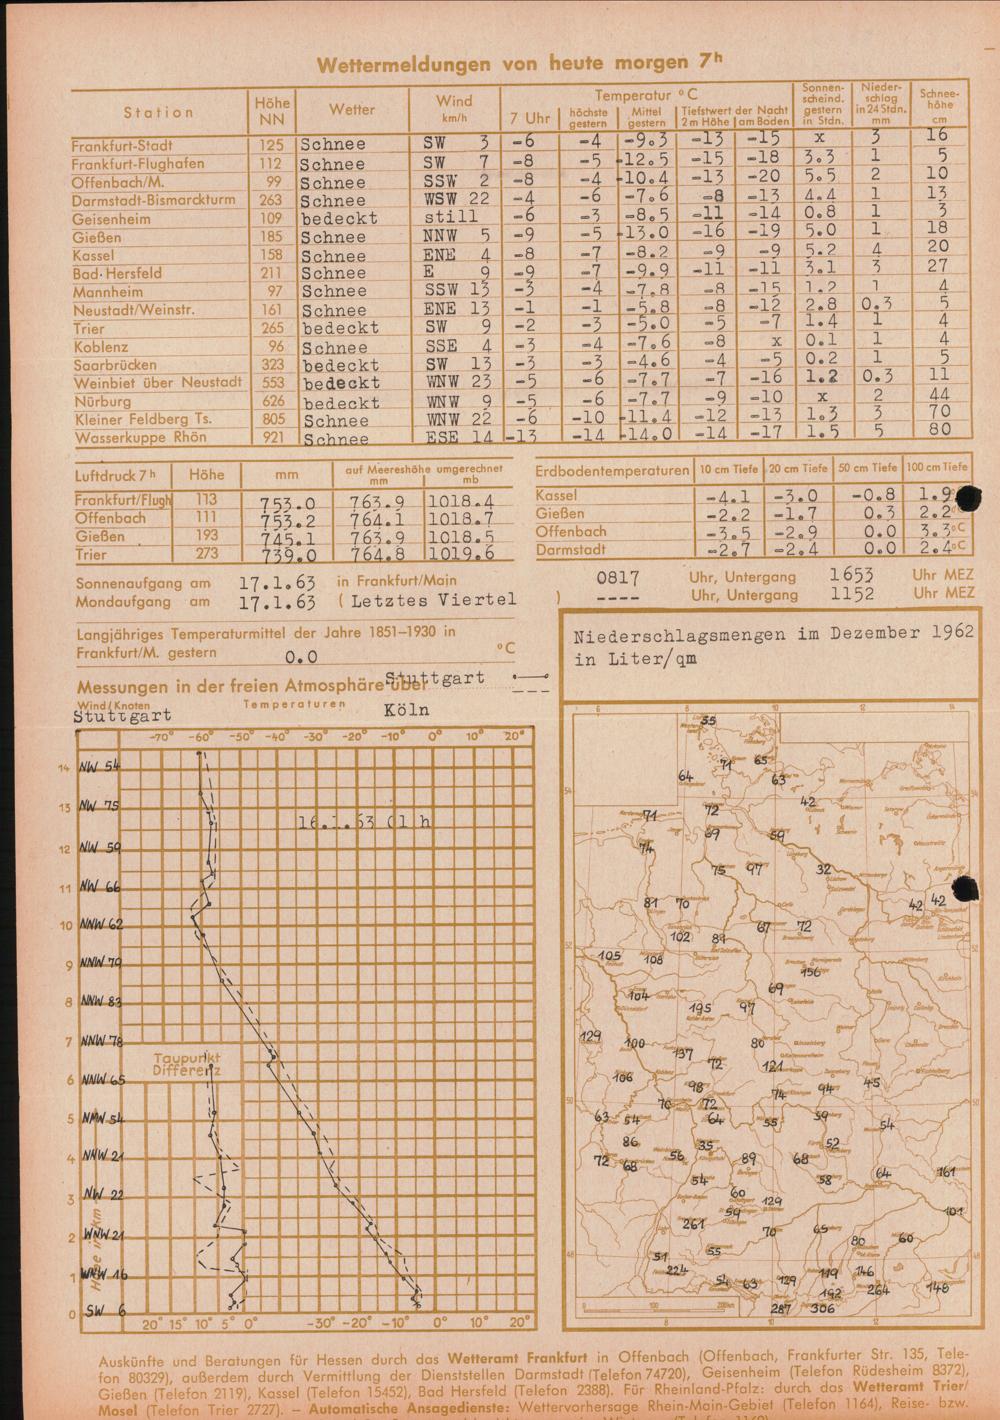 Wettermeldungen von heute morgen 7h
Station Höhe NN Wetter Wind km/h Temperatur °C Sonnenscheind. gestern in Stdn. Niederschlag in 24 Stdn. mm Schneehöhe cm
7 Uhr höchste gestern Mittel gestern Tiefstwert der Nacht 2 m Höhe am Boden
Frankfurt-Stadt 125 Schnee SW 3 -6 -4 -9.3 -13 -15 x 3 16
Frankfurt-Flughafen 112 Schnee SW 7 -8 -5 -12.5 -15 -18 3.3 1 5
Offenbach/M. 99 Schnee SSW 2 -8 -4 -10.4 -13 -20 5.5 2 10
Darmstadt-Bismarckturm 263 Schnee WSW 22 -4 -6 -7.6 -8 -13 4.4 1 13
Geisenheim 109 bedeckt still -6 -3 -8.5 -11 -14 0.8 1 3
Gießen 185 Schnee NNW 5 -9 -5 -13.0 -16 -19 5.0 1 18
Kassel 158 Schnee ENE 4 -8 -7 -8.2 -9 -9 5.2 4 20
Bad-Hersfeld 211 Schnee E 9 -9 -7 -9.9 -11 -11 3.1 3 27
Mannheim 97 Schnee SSW 13 -3 -4 -7.8 -8 -15 1.2 1 4
Neustadt/Weinstr. 161 Schnee ENE 13 -1 -1 -5.8 -8 -12 2.8 0.3 5
Trier 265 bedeckt SW 9 -2 -3 -5.0 -5 -7 1.4 1 4
Koblenz 96 Schnee SSE 4 -3 -4 -7.6 -8 x 0.1 1 4
Saarbrücken 323 bedeckt SW 13 -3 -3 -4.6 -4 -5 0.2 1 5
Weinbiet über Neustadt 553 bedeckt WNW 23 -5 -6 -7.7 -7 -16 1.2 0.3 11
Nürburg 626 bedeckt WNW 9 -5 -6 -7.7 -9 -10 x 2 44
Kleiner Feldberg Ts. 805 Schnee WNW 22 -6 -10 -11.4 -12 -13 1.3 3 70
Wasserkuppe Rhön 921 Schnee ESE 14 -13 -14 -14.0 -14 -17 1.5 5 80
Luftdruck 7h Höhe mm auf Meereshöhe umgerechnet mm mb
Frankfurt/Flugh 113 753.0 763.9 1018.4
Offenbach 111 753.2 764.1 1018.7
Gießen 193 745.1 763.9 1018.5
Trier 273 739.0 764.8 1019.6
Erdbodentemperaturen 10 cm Tiefe 20 cm Tiefe 50 cm Tiefe 100 cm Tiefe
Kassel -4.1 -3.0 -0.8 1.9
Gießen -2.2 -1.7 0.3 2.2
Offenbach -3.5 -2.9 0.0 3.3°C
Darmstadt -2.7 -2.4 0.0 2.4°C
Sonnenaufgang am 17.1.63 in Frankfurt/Main 0817 Uhr, Untergang 1653 Uhr MEZ
Mondaufgang am 17.1.63 ( Letztes Viertel ) ---- Uhr, Untergang 1152 Uhr MEZ
Langjähriges Temperaturmittel der Jahre 1851–1930 in
Frankfurt/M. gestern 0.0 °C
Messungen in der freien Atmosphäre über Stuttgart
Wind/Knoten Temperaturen
Stuttgart Köln
-70° -60° -50° -40° -30° -20° -10° 0° 10° 20°
14 NW 54
13 NW 75
16.1.63 01 h
12 NW 59
11 NW 66
10 NNW 62
9 NNW 70
8 NNW 83
7 NNW 78
Taupunkt
Differenz
6 NNW 65
5 NNW 54
4 NNW 21
3 NW 22
2 WNW 21
1 WNW 16
0 SW 6
Höhe in km
20° 15° 10° 5° 0° -30° -20° -10° 0° 10° 20°
Niederschlagsmengen im Dezember 1962
in Liter/qm
6 8 10 12 14
55
71 65
64 63
42
71 72
69 59
74
75 97 32
81 70 42 42
67 72
102 89
105 108
156
104 69
195 97
129 100 80
137 72 121
106 98 94 45
76 72 74
63 54 64 55 59 54
86 35 52
72 68 56 89 68
54 58 64 161
60
59 129 101
261 70 65
80 60
51 55
224 119 146
54 63 129 264 148
192
287 306
0 100 200km
8 10 12
Auskünfte und Beratungen für Hessen durch das Wetteramt Frankfurt in Offenbach (Offenbach, Frankfurter Str. 135, Tele-
fon 80329), außerdem durch Vermittlung der Dienststellen Darmstadt (Telefon 74720), Geisenheim (Telefon Rüdesheim 8372),
Gießen (Telefon 2119), Kassel (Telefon 15452), Bad Hersfeld (Telefon 2388). Für Rheinland-Pfalz: durch das Wetteramt Trier/
Mosel (Telefon Trier 2727). – Automatische Ansagedienste: Wettervorhersage Rhein-Main-Gebiet (Telefon 1164), Reise- bzw.